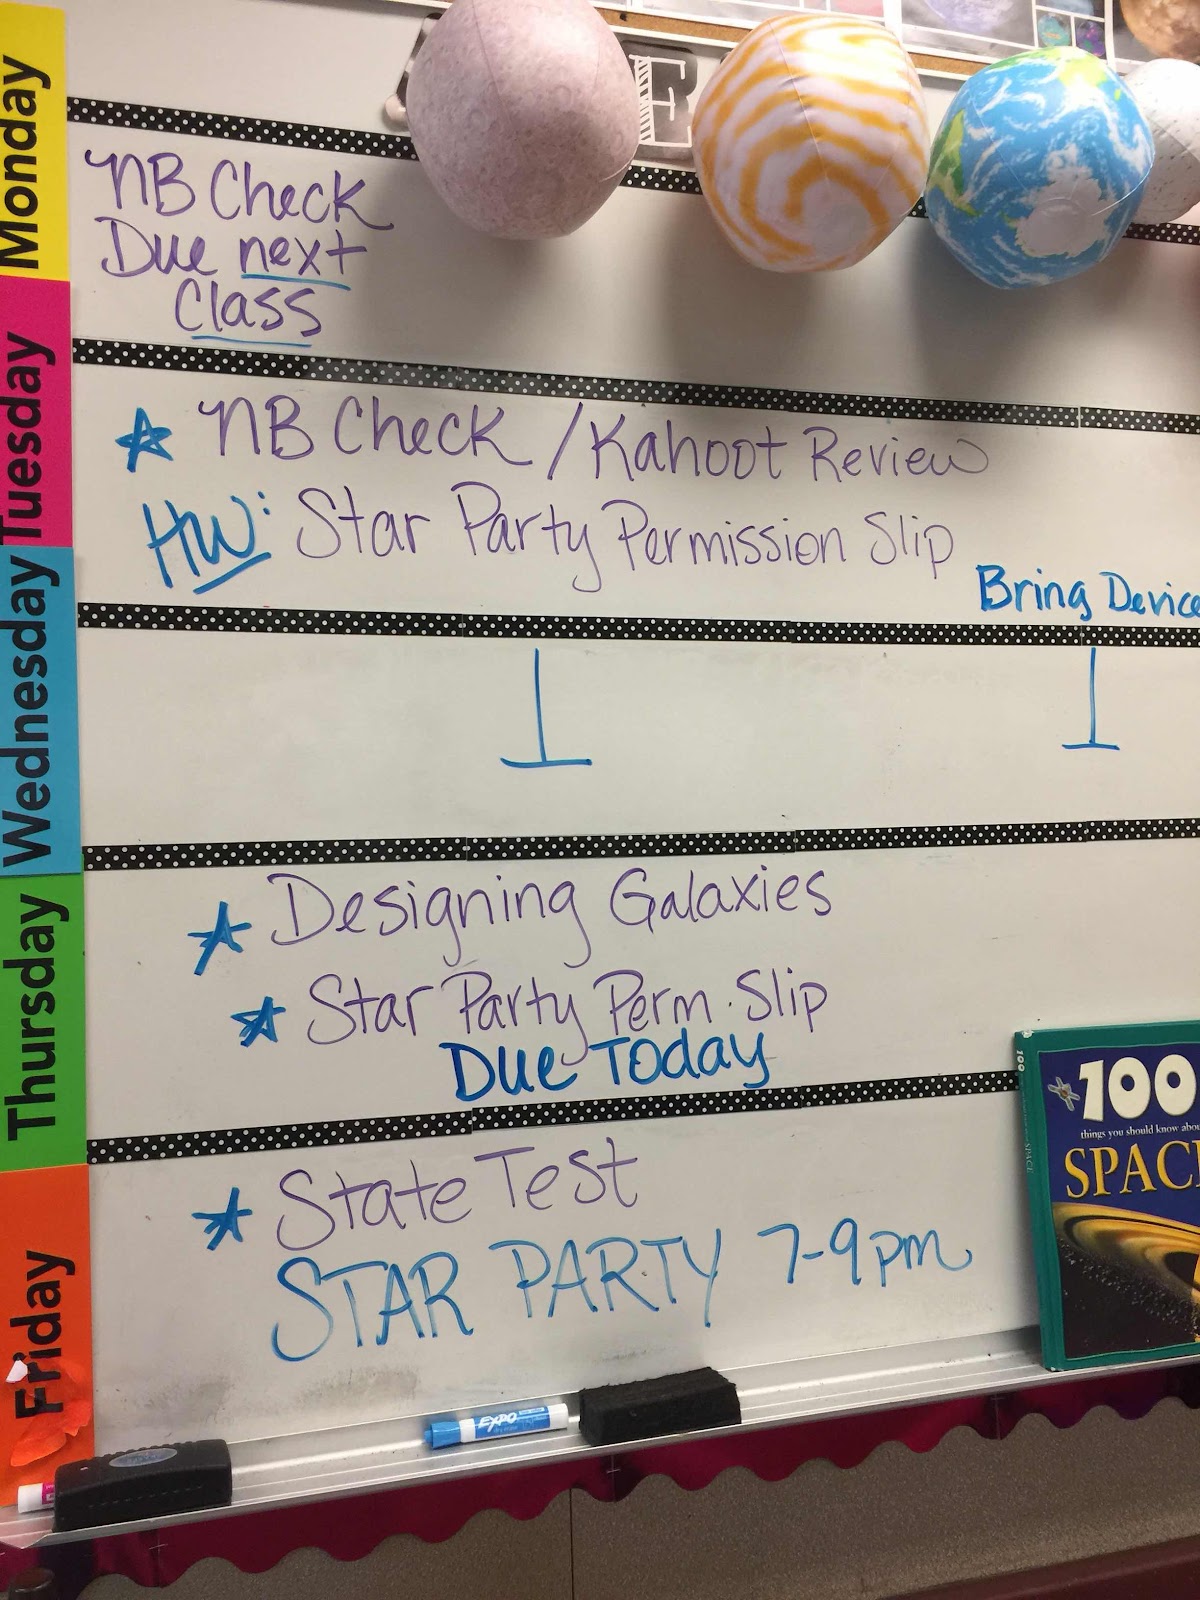 Monday
NB Check
Due next
Class
Tuesday
NB Check / Kahoot Review
HW: Star Party Permission Slip
Bring Device
Wednesday
Thursday
Designing Galaxies
Star Party Perm. Slip
Due Today
Friday
State Test
STAR PARTY 7-9pm
100
100
things you should know about
SPACE
SPACE
EXPO